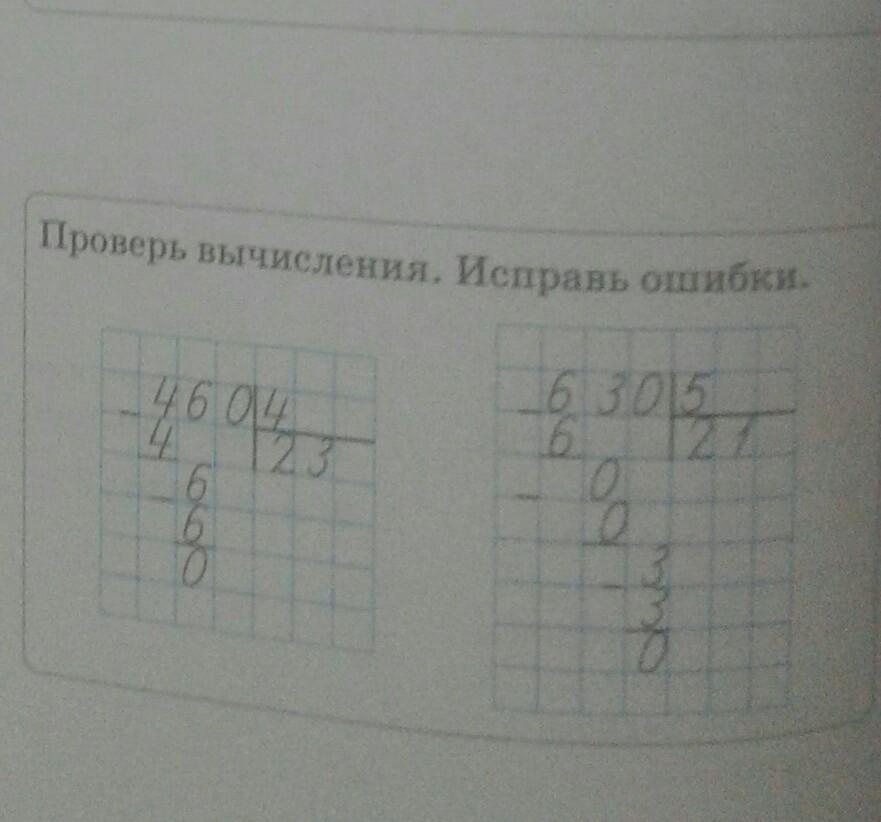 Проверь вычисления. Исправь ошибки.
460 4
4 23
6
6
0
630 5
6 21
0
0
3
3
0